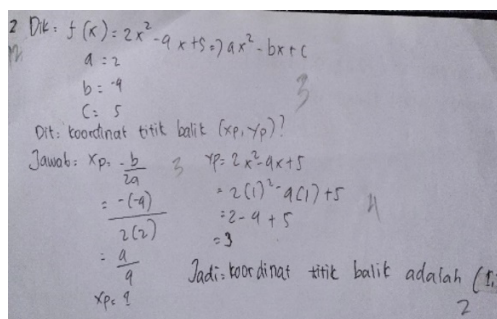 2 Dik: f(x) = 2x² - 4x + 5 => ax² - bx + c
a = 2
b = -4
C = 5
3
Dit: koordinat titik balik (xp, yp)?
Jawab: xp = -b/2a
= -(-4)/2(2)
= 4/4
xp = 1
3
yp = 2x² - 4x + 5
= 2(1)² - 4(1) + 5
= 2 - 4 + 5
= 3
4
Jadi: koordinat titik balik adalah (1,
2